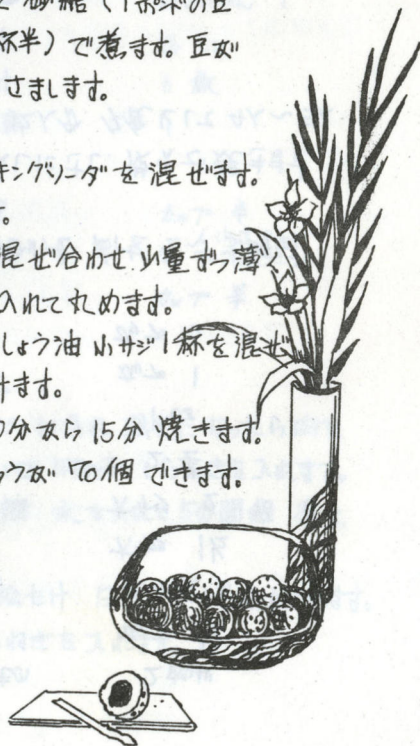 砂糖(1ポンドの豆
杯半)で煮ます。豆が
さまします。
キングソーダーを混ぜます。
。
混ぜ合わせ少量ずつ薄く
入れて丸めます。
しょう油小サジ1杯を混ぜ
けます。
0分から15分焼きます。
ウが70個できます。